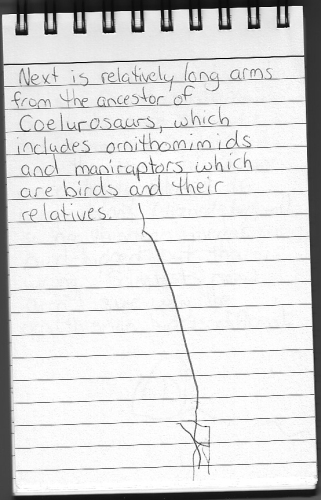 Next is relatively long arms
from the ancestor of
Coelurosaurs, which
includes ornithomimids
and maniraptors which
are birds and their
relatives.